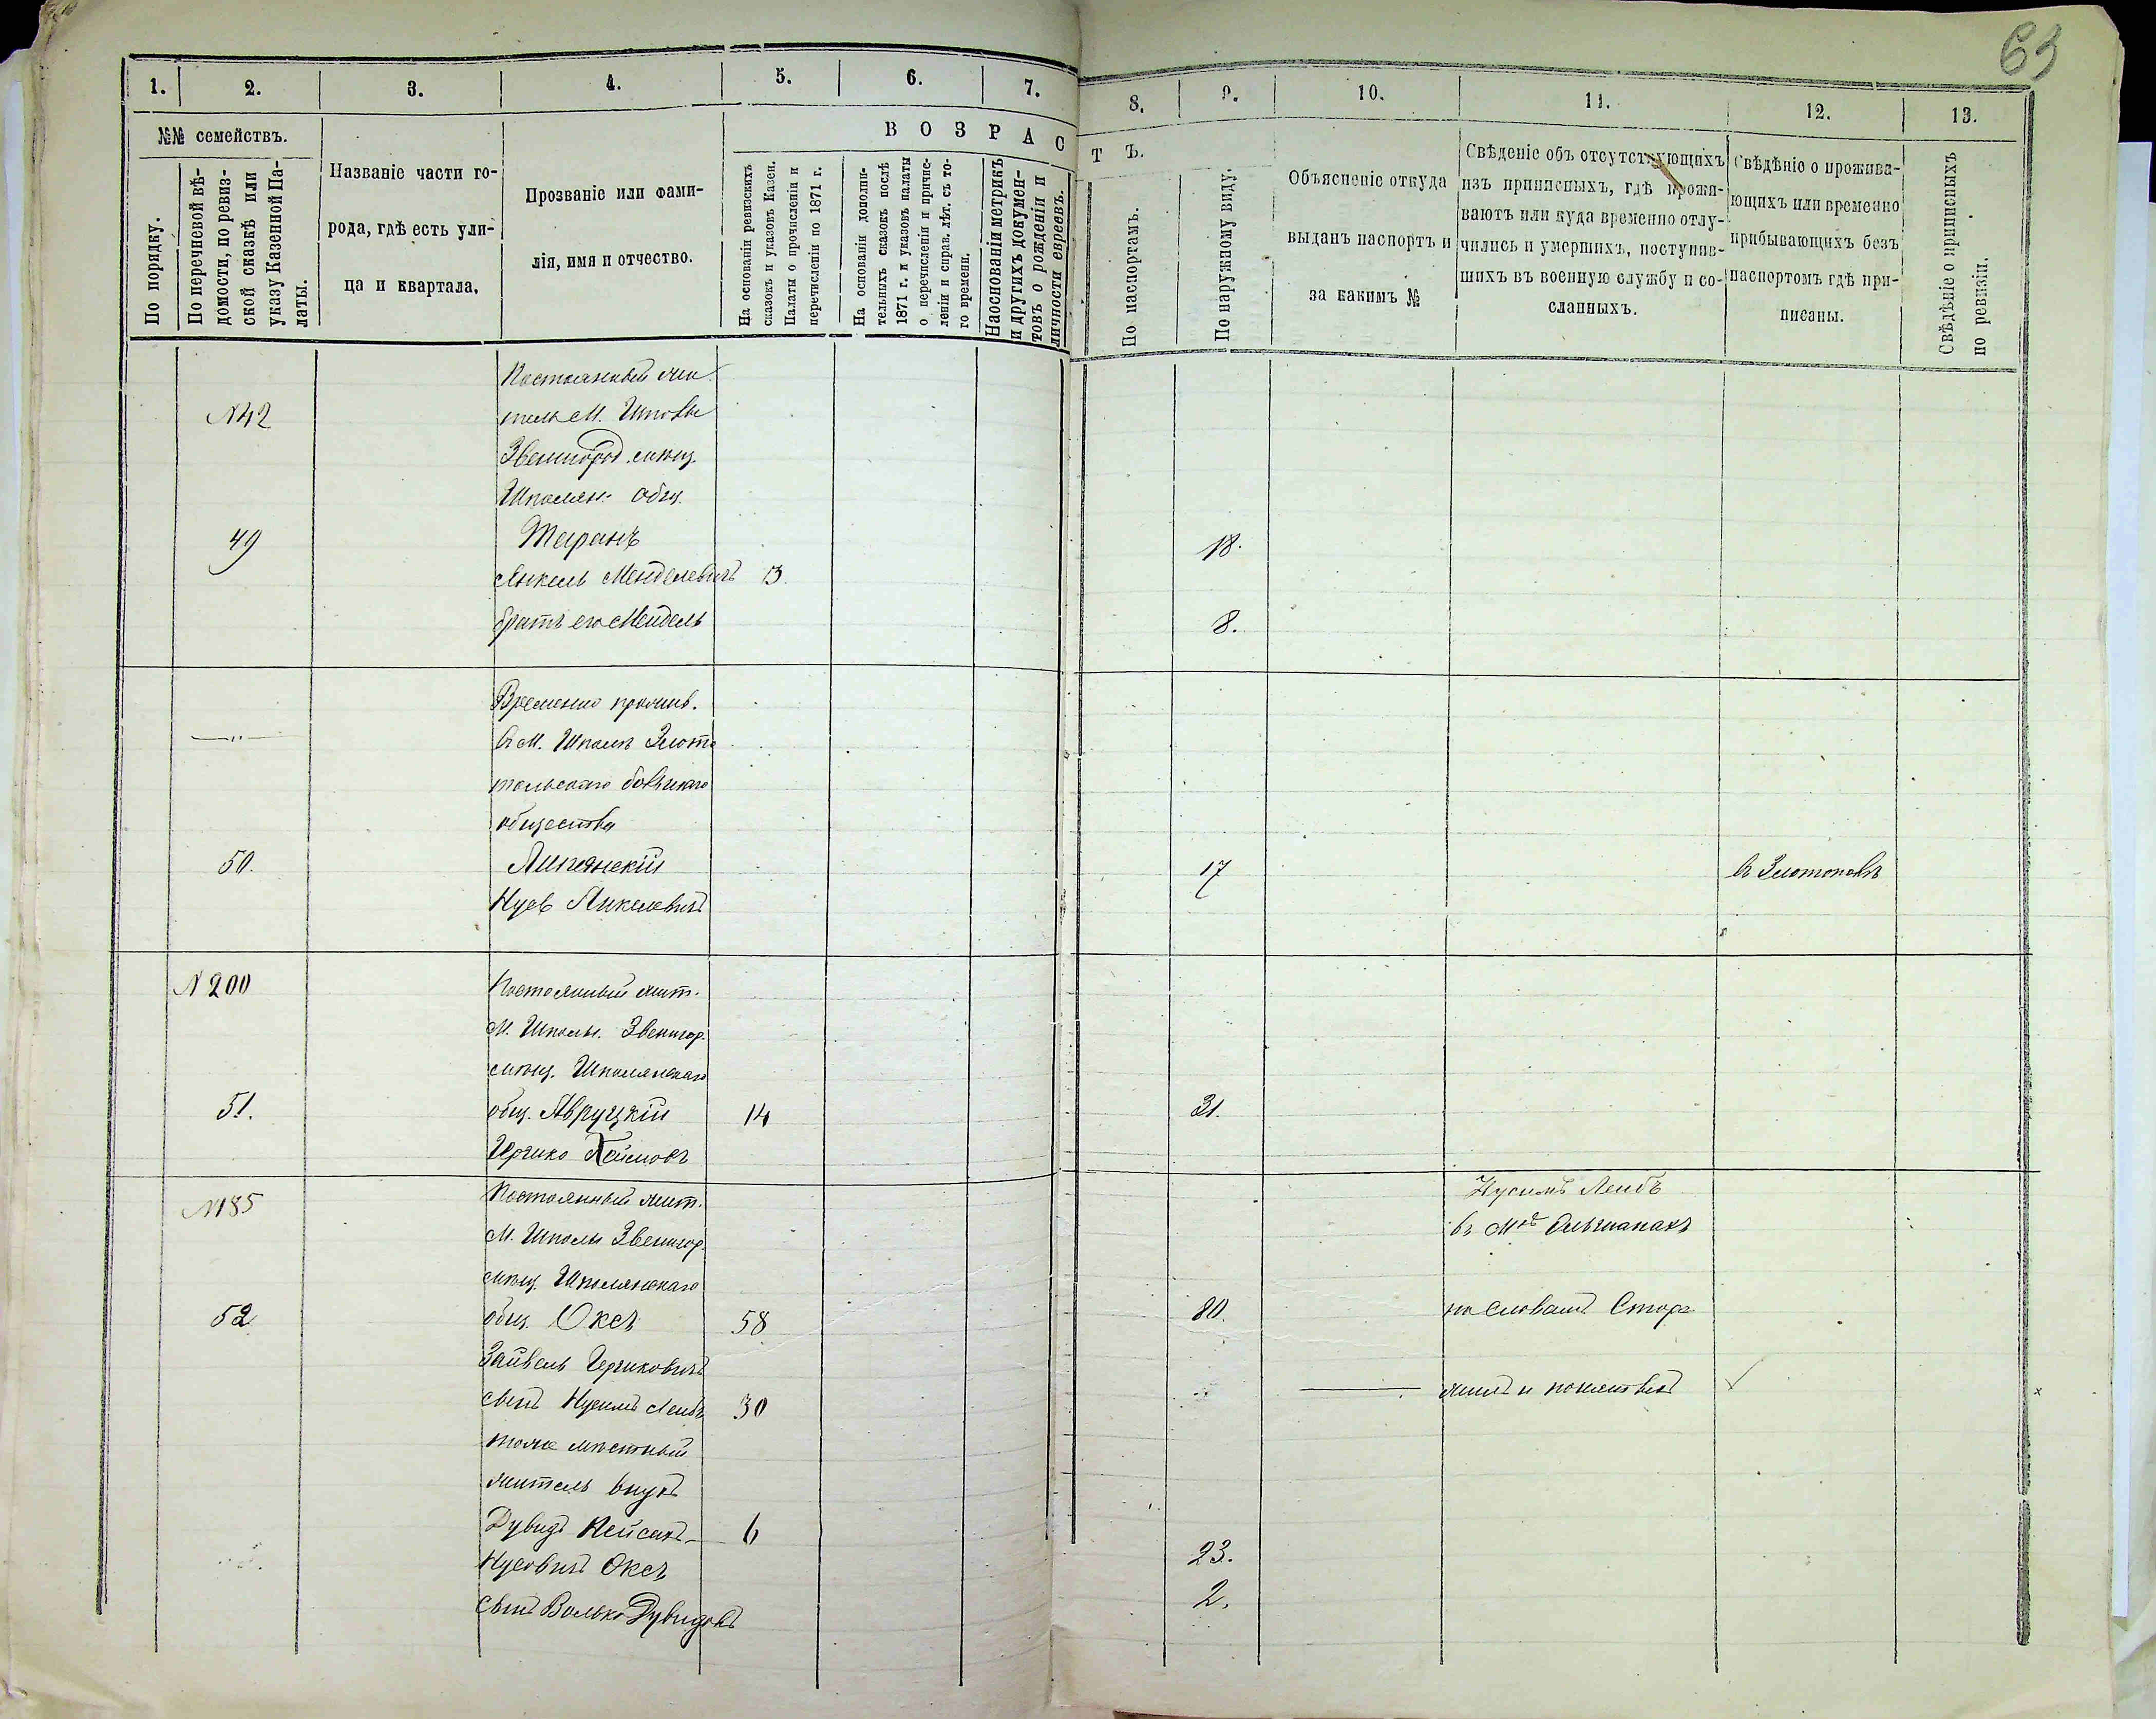 63
1. 2. 3. 4. 5. 6. 7. 8. 9. 10. 11. 12. 13.
№№ семействъ.
По порядку.
По перечневой вѣ-
домости, по ревиз-
ской сказкѣ или
указу Казенной Па-
латы.
Названіе части го-
рода, гдѣ есть ули-
ца и квартала.
Прозваніе или фами-
лія, имя и отчество.
ВОЗРАСТЪ.
На основаніи ревизскихъ
сказокъ и указовъ Казен.
Палаты о прочисленіи и
перечисленіи по 1871 г.
На основаніи дополни-
тельныхъ сказокъ послѣ
1871 г. и указовъ палаты
о перечисленіи и причис-
леніи и справ. лѣт. съ то-
го времени.
На основаніи метрикъ
и другихъ докумен-
товъ о рожденіи и
личности евреевъ.
По паспортамъ.
По наружному виду.
Объясненіе откуда
выданъ паспортъ и
за какимъ №
Свѣденіе объ отсутствующихъ
изъ приписныхъ, гдѣ прожи-
ваютъ или куда временно отлу-
чились и умершихъ, поступив-
шихъ въ военную службу и со-
сланныхъ.
Свѣдѣніе о прожива-
ющихъ или временно
прибывающихъ безъ
паспортомъ гдѣ при-
писаны.
Свѣдѣніе о приписныхъ
по ревизіи.
Постоянный жи
№42 тель М. Шполы
Звенигород. мѣщ.
Шполян. общ.
49 Таранъ 18.
Янкель Менделевичъ 13.
братъ его Мендель 8.
Временно прожив.
—〃— въ М. Шполѣ Злото
польскаго
общества
50. Липянскій 17 въ Златополѣ
Нусь Янкелевичъ
№200 Постоянный жит.
М. Шполы. Звенигор.
мѣщ. Шполянскаго
51. общ. Авруцкій 14 31.
Гершко Хаимовъ
№185 Постоянный жит. Нусимъ Лейбъ
М. Шполы Звенигор. въ Мкѣ Ольшанахъ
мѣщ. Шполянскаго
52 общ. Оксъ 58 80. по словамъ Стор
Зайвель Гершковичъ
сынъ Нусимъ Лейбъ 30
тоже мѣстный
житель внукъ
Дувидъ Пейсахъ- 6
Нусовичъ Оксъ 23.
сынъ Волько Дувидовъ 2.